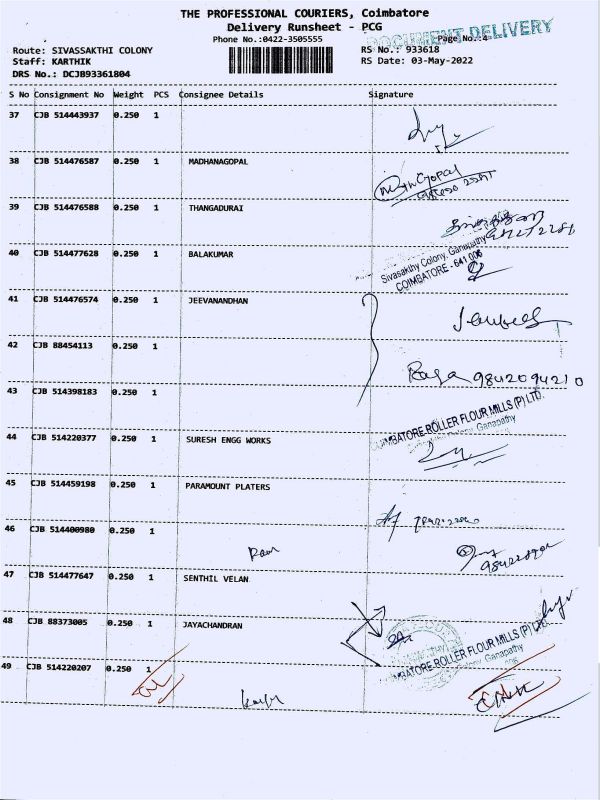 THE PROFESSIONAL COURIERS, Coimbatore
Delivery Runsheet - PCG
DOCUMENT DELIVERY
Phone No.:0422-3505555
Page No.:4
Route: SIVASSAKTHI COLONY
RS No.: 933618
Staff: KARTHIK
RS Date: 03-May-2022
DRS No.: DCJB93361804
S No Consignment No Weight PCS Consignee Details Signature
37 CJB 514443937 0.250 1
38 CJB 514476587 0.250 1 MADHANAGOPAL
39 CJB 514476588 0.250 1 THANGADURAI
40 CJB 514477628 0.250 1 BALAKUMAR
Sivasakthy Colony, Ganapathy
COIMBATORE - 641 006
41 CJB 514476574 0.250 1 JEEVANANDHAN
42 CJB 88454113 0.250 1
9842094210
43 CJB 514398183 0.250 1
COIMBATORE ROLLER FLOUR MILLS (P) LTD.
Colony, Ganapathy
44 CJB 514220377 0.250 1 SURESH ENGG WORKS
45 CJB 514459198 0.250 1 PARAMOUNT PLATERS
46 CJB 514400980 0.250 1
47 CJB 514477647 0.250 1 SENTHIL VELAN
48 CJB 88373005 0.250 1 JAYACHANDRAN
COIMBATORE ROLLER FLOUR MILLS (P) LTD.
Colony, Ganapathy
49 CJB 514220207 0.250 1